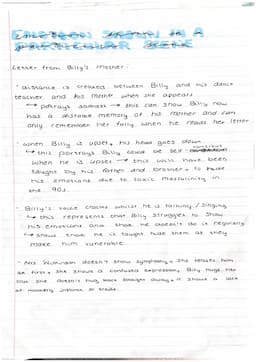 EMOTION SHOWN IN A
PARTICULAR SCENE
Letter from Billy's mother:
• distance is created between Billy and his dance
teacher and his mother when she appears
↳ portrays sadness → this can show Billy now
has a distance memory of his mother and can
only remember her fully when he reads her letter
• When Billy is upset, his head goes down
↳ this portrays Billy could be self conscious
when he is upset → this will have been
taught by his father and brother → to hide
his emotions due to toxic masculinity in
the 90s.
• Billy's voice cracks whilst he is talking / singing
↳ this represents that Billy struggles to show
his emotions and that he doesn't do it regularly
↳ shows that he is taught hide them as they
make him vulnerable
• Mrs Wilkinson doesn't show sympathy → she tenses
at first → she shows a confused expression, Billy hugs her
but she doesn't hug back straight away → it shows a lack
of